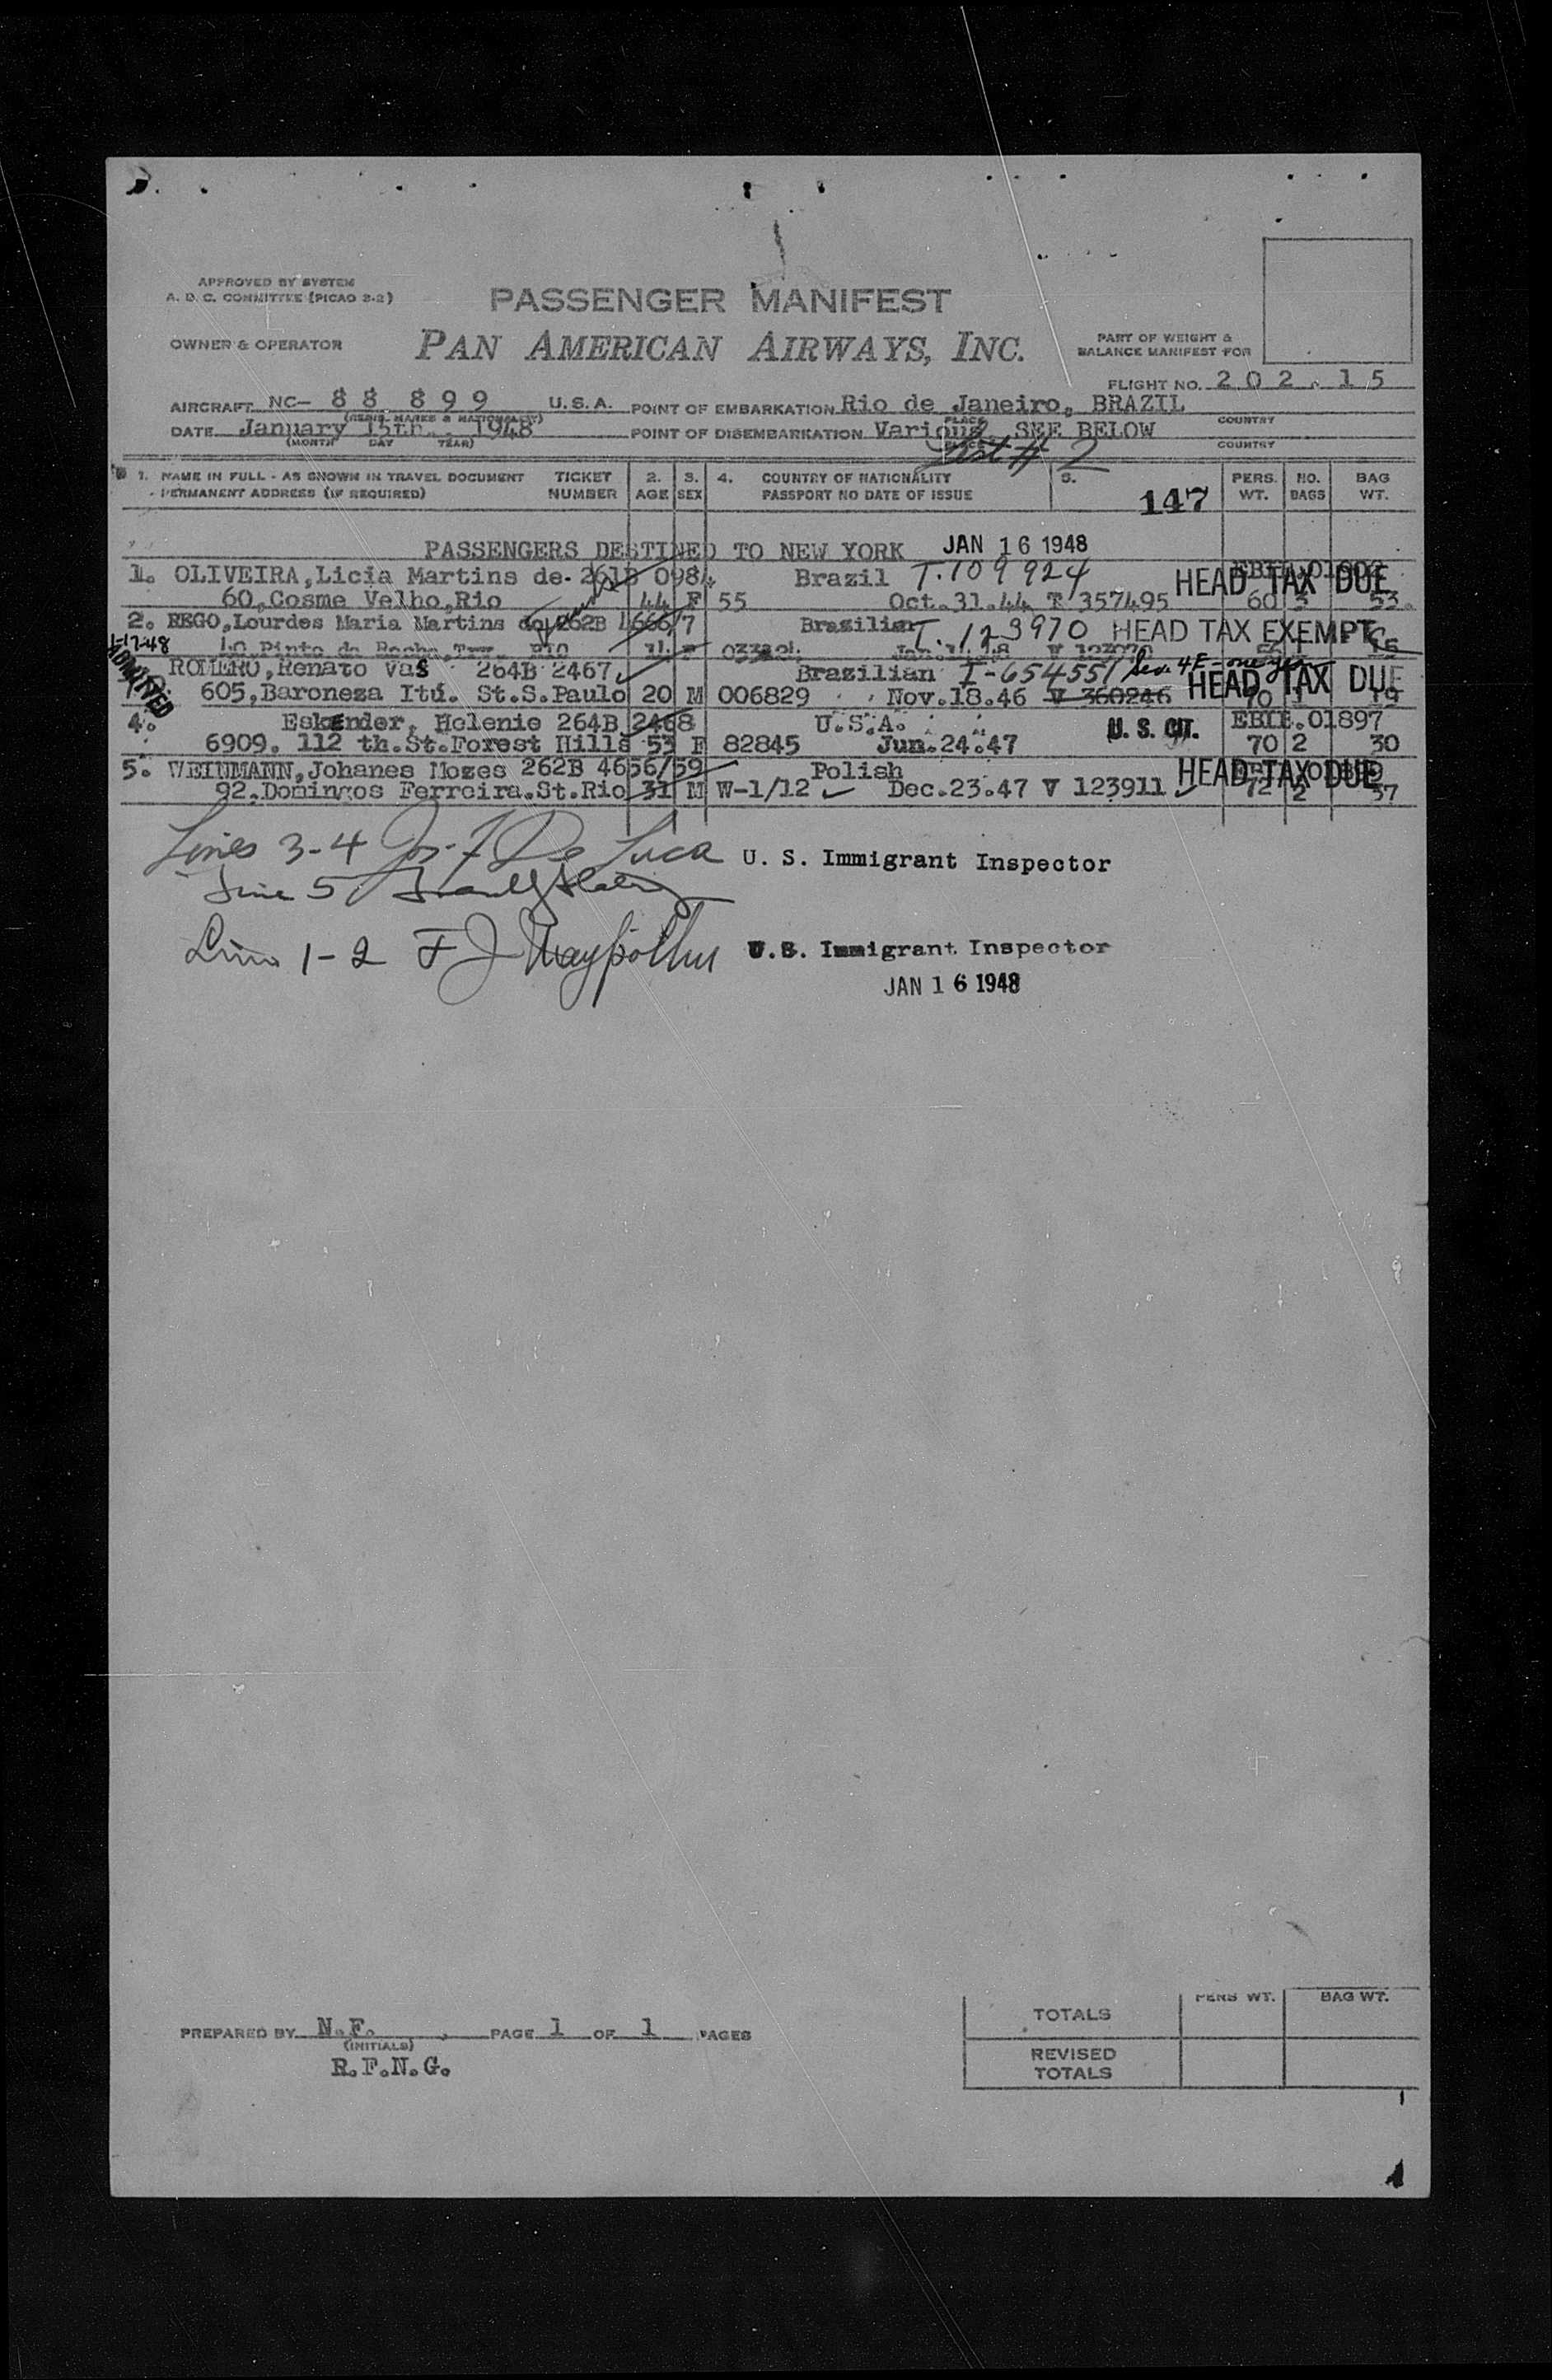 APPROVED BY SYSTEM
A. D. C. COMMITTEE (PICAO 2-2)
PASSENGER MANIFEST
OWNER & OPERATOR
PAN AMERICAN AIRWAYS, INC.
PART OF WEIGHT &
BALANCE MANIFEST FOR
FLIGHT NO. 202.15
AIRCRAFT NC- 88 899 U.S.A. POINT OF EMBARKATION Rio de Janeiro, BRAZIL
(REGIS. MARKS & NATIONALITY) PLACE COUNTRY
DATE January 15th. 1948 POINT OF DISEMBARKATION Various SEE BELOW
(MONTH DAY YEAR) PLACE COUNTRY
List # 2
1. NAME IN FULL - AS SHOWN IN TRAVEL DOCUMENT TICKET 2. 3. 4. COUNTRY OF NATIONALITY 5. PERS. NO. BAG
PERMANENT ADDRESS (IF REQUIRED) NUMBER AGE SEX PASSPORT NO DATE OF ISSUE 147 WT. BAGS WT.
PASSENGERS DESTINED TO NEW YORK JAN 16 1948
1. OLIVEIRA,Licia Martins de. 261B 0984 Brazil T.109924 HEAD TAX DUE
60,Cosme Velho,Rio 44 F 55 Oct.31.44 T 357495 60 3 53.
2. REGO,Lourdes Maria Martins do 262B 4666/7 Brazilian T. 123970 HEAD TAX EXEMPT
1-17-48 40 Pinto da Rocha, RIO V 123970
ADMITTED
ROMERO,Renato Vas 264B 2467 Brazilian I-654551 HEAD TAX DUE
605,Baroneza Itú. St.S.Paulo 20 M 006829 Nov.18.46 V 360246 70 1 19
4. Eskender, Helenie 264B 2468 U.S.A. U. S. CIT. EBIE.01897
6909. 112 th.St.Forest Hills 53 F 82845 Jun.24.47 70 2 30
5. WEINMANN,Johanes Mozes 262B 4656/59 Polish HEAD TAX DUE
92.Domingos Ferreira.St.Rio 31 M W-1/12 Dec.23.47 V 123911 72 2 37
Lines 3-4 Jos. F De Luca U. S. Immigrant Inspector
Line 5
Lines 1-2 F J U.S. Immigrant Inspector
JAN 16 1948
PERS WT. BAG WT.
TOTALS
PREPARED BY N.F. PAGE 1 OF 1 PAGES
(INITIALS)
R.F.N.G.
REVISED
TOTALS